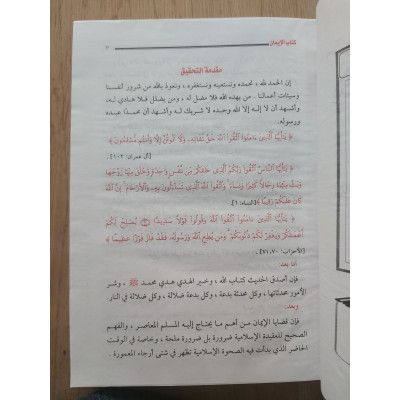 كتاب الإيمان ٣
مقدمة التحقيق
إن الحمد لله، نحمده ونستعينه ونستغفره، ونعوذ بالله من شرور أنفسنا
وسيئات أعمالنا. من يهده الله فلا مضل له، ومن يضلل فلا هادي له،
وأشهد أن لا إله إلا الله وحده لا شريك له وأشهد أن محمدًا عبده
ورسوله.
﴿ يَٰٓأَيُّهَا ٱلَّذِينَ ءَامَنُوا۟ ٱتَّقُوا۟ ٱللَّهَ حَقَّ تُقَاتِهِۦ وَلَا تَمُوتُنَّ إِلَّا وَأَنتُم مُّسْلِمُونَ ﴾
[آل عمران: ١٠٢]
﴿ يَٰٓأَيُّهَا ٱلنَّاسُ ٱتَّقُوا۟ رَبَّكُمُ ٱلَّذِى خَلَقَكُم مِّن نَّفْسٍ وَٰحِدَةٍ وَخَلَقَ مِنْهَا زَوْجَهَا
وَبَثَّ مِنْهُمَا رِجَالًا كَثِيرًا وَنِسَآءً ۚ وَٱتَّقُوا۟ ٱللَّهَ ٱلَّذِى تَسَآءَلُونَ بِهِۦ وَٱلْأَرْحَامَ ۚ إِنَّ ٱللَّهَ
كَانَ عَلَيْكُمْ رَقِيبًا ﴾ [النساء: ١].
﴿ يَٰٓأَيُّهَا ٱلَّذِينَ ءَامَنُوا۟ ٱتَّقُوا۟ ٱللَّهَ وَقُولُوا۟ قَوْلًا سَدِيدًا ۝٧٠ يُصْلِحْ لَكُمْ
أَعْمَٰلَكُمْ وَيَغْفِرْ لَكُمْ ذُنُوبَكُمْ ۗ وَمَن يُطِعِ ٱللَّهَ وَرَسُولَهُۥ فَقَدْ فَازَ فَوْزًا عَظِيمًا ﴾
[الأحزاب: ٧٠، ٧١].
أما بعد:
فإن أصدق الحديث كتاب الله، وخير الهدي هدي محمد ﷺ، وشر
الأمور محدثاتها، وكل محدثة بدعة، وكل بدعة ضلالة، وكل ضلالة في النار.
وبعد.
فإن قضايا الإيمان من أهم ما يحتاج إليه المسلم المعاصر، والفهم
الصحيح للعقيدة الإسلامية ضرورة بل ضرورة ملحة، وخاصة في الوقت
الحاضر الذي بدأت فيه الصحوة الإسلامية تظهر في شتى أرجاء المعمورة.